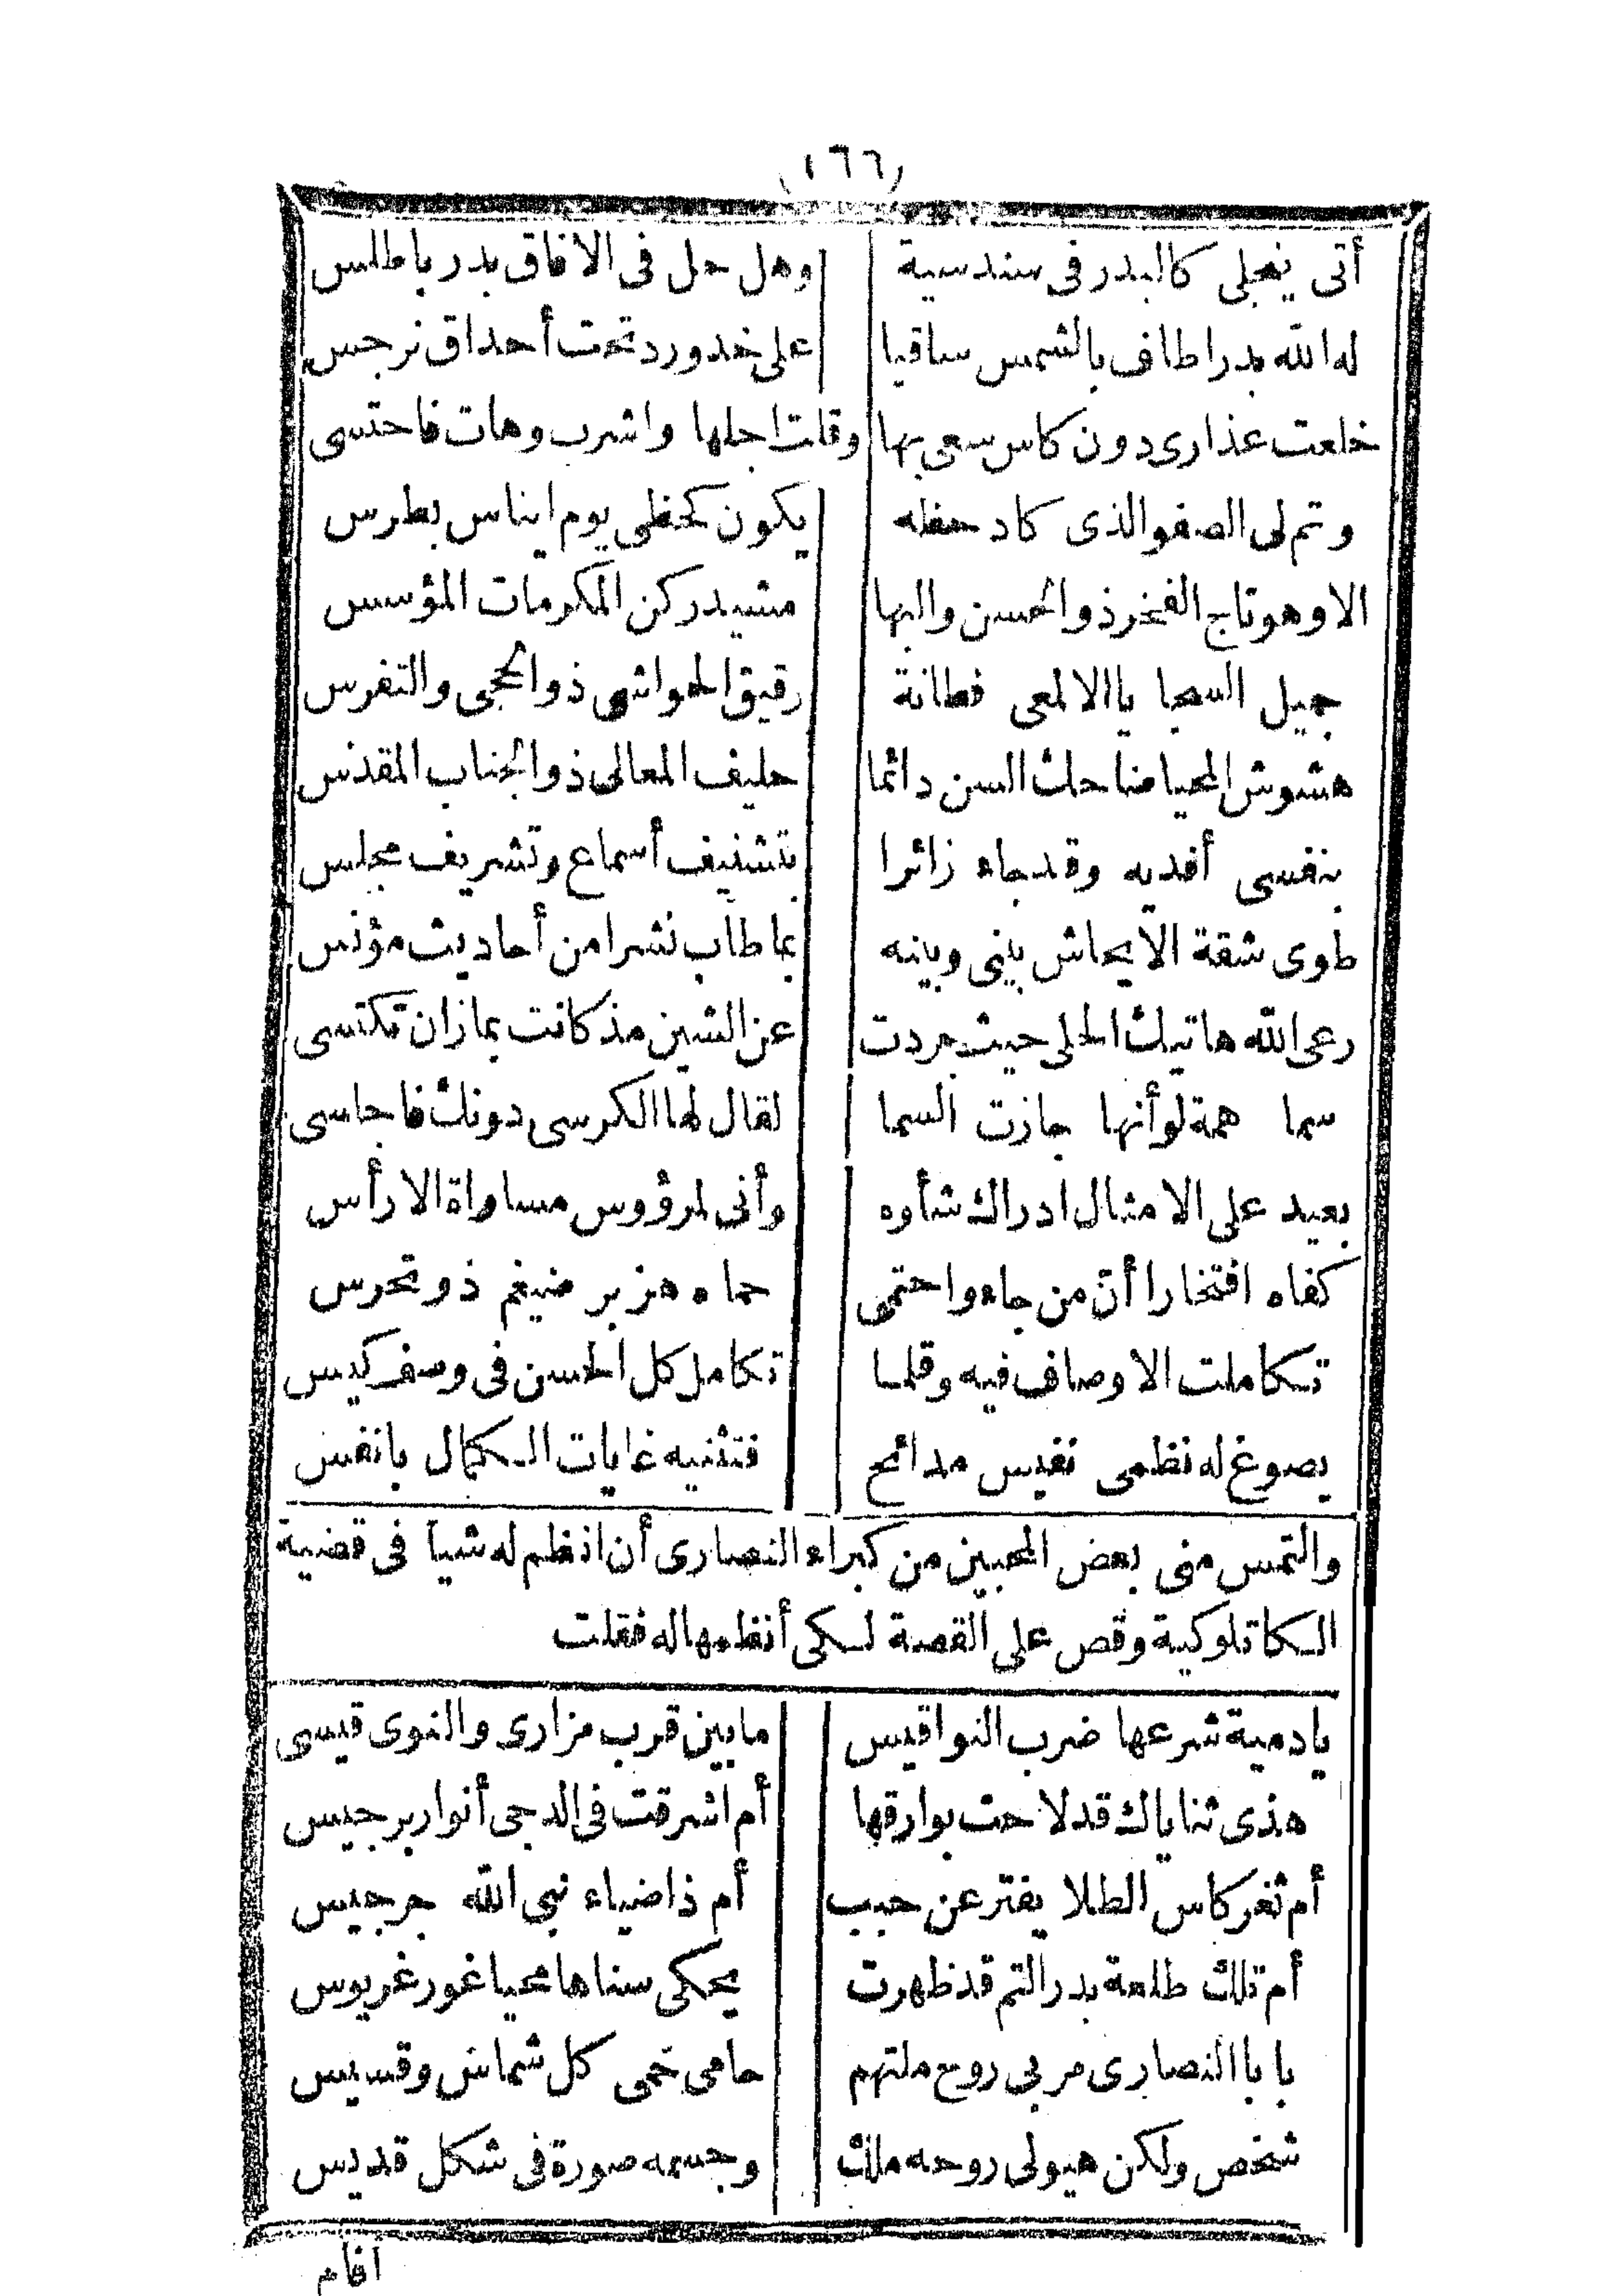 (١٦٦)
أتى ينجلى كالبدر فى سندسية وهل حل فى الافاق بدر باطلس
له الله بدرا طاف بالشمس ساقيا على خد ورد تحت أحداق نرجس
خلعت عذارى دون كاس سعى بها وقلت اجلها واشرب وهات فاحتسى
وتم لى الصفو الذى كاد حظه يكون كحظى يوم ايناس بطرس
الا وهو تاج الفخر ذو الحسن والبها مشيد ركن المكرمات المؤسس
جميل السجايا الالمعى فطانة رقيق الحواشى ذو الحجى والتفرس
هشوش المحيا ضاحك السن دائما حليف المعالى ذو الجناب المقدّس
بنفسى أفديه وقد جاء زائرا بتشنيف أسماع وتشريف مجلس
طوى شقة الايحاش بينى وبينه بما طاب نشرا من أحاديث مؤنس
رعى الله هاتيك الحلى حيث جردت عن الشين مذ كانت بما زان تكتسى
سما همة لو أنها جازت السما لقال لها الكرسى دونك فاجلسى
بعيد على الامثال ادراك شأوه وأنى لمرؤوس مساواة الارأس
كفاه افتخارا أنّ من جاء واحتمى حماه هزبر ضيغم ذو تحرس
تكاملت الاوصاف فيه وقلما تكامل كل الحسن فى وصف كيس
يصوغ له نظمى نفيس مدائح فتثنيه غايات الكمال بانفس
والتمس منى بعض المحبين من كبراء النصارى أن انظم له شيأ فى قضية
الكاتلوكية وقص على القصة لكى أنظمها له فقلت
يا دمية شرعها ضرب النواقيس ما بين قرب مزارى والنوى قيسى
هذى ثناياك قد لاحت بوارقها أم اشرقت فى الدجى أنوار برجيس
أم ثغر كاس الطلا يفتر عن حبب أم ذا ضياء نبى الله جرجيس
أم تلك طلعة بدر التم قد ظهرت يحكى سناها محيا غور غريوس
بابا النصارى مربى روح ملتهم حامى حمى كل شماس وقسيس
شخص ولكن هيولى روحه ملك وجسمه صورة فى شكل قديس
اقام